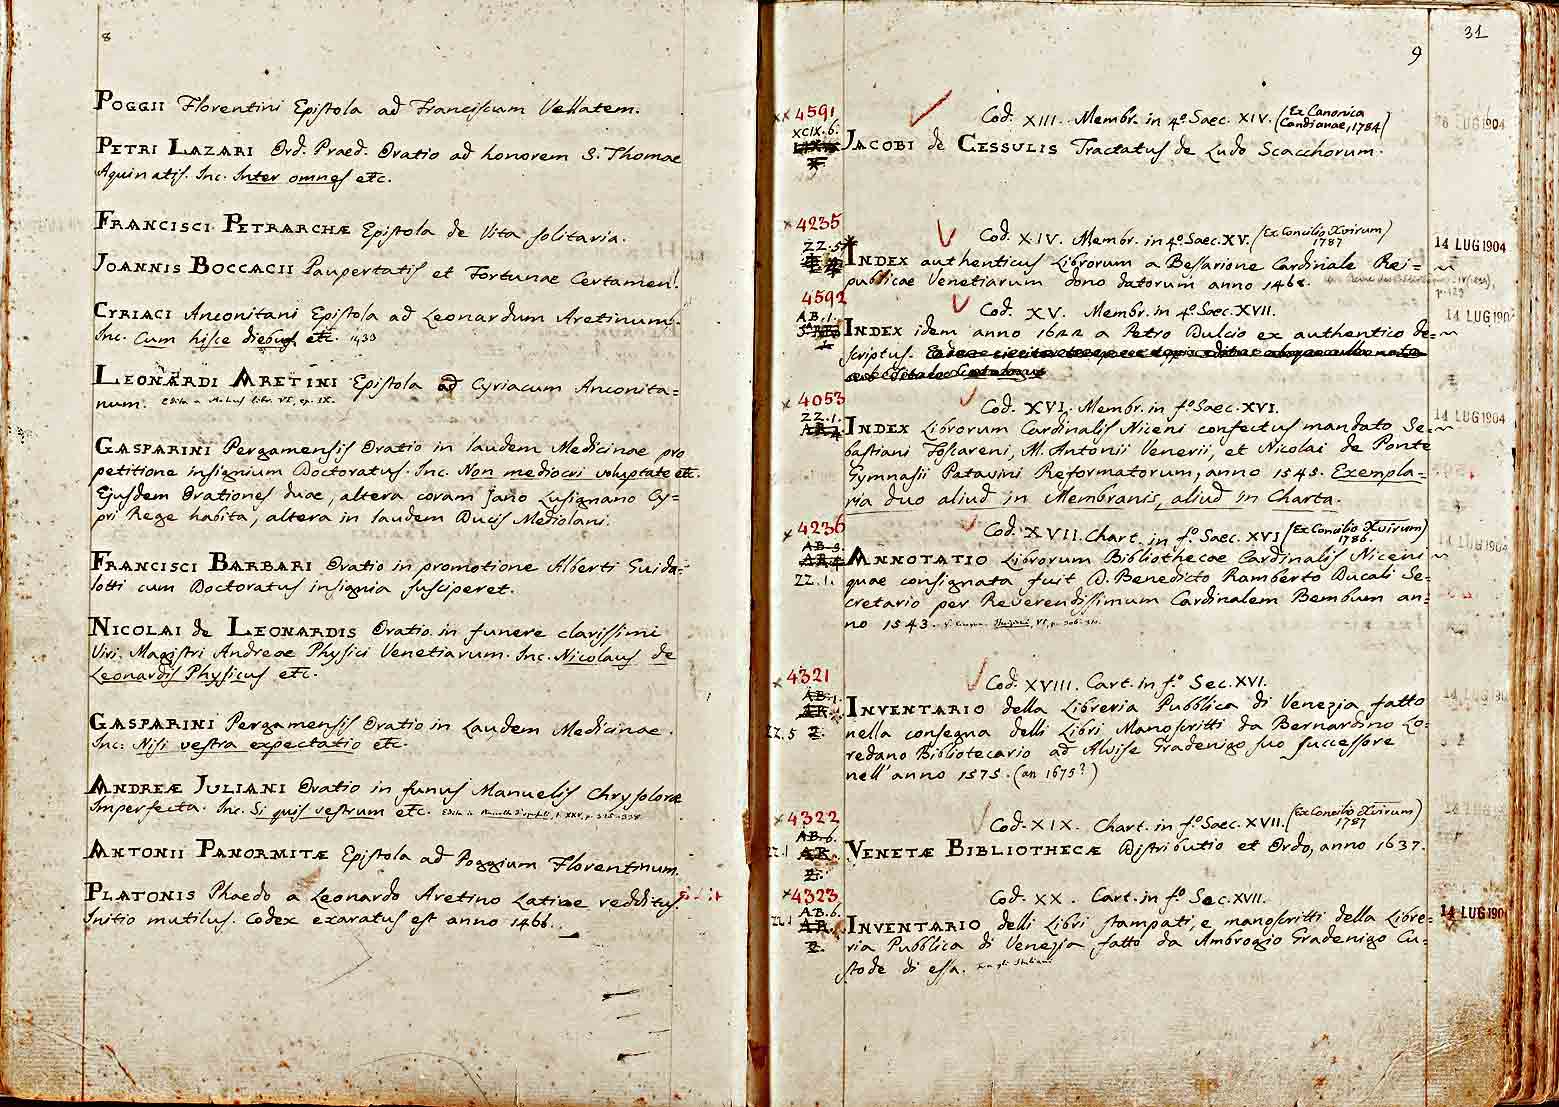 8
POGGII Florentini Epistola ad Franciscum Vellatem.
PETRI LAZARI Ord. Praed. Oratio ad honorem S. Thomae
Aquinatis. Inc. Inter omnes etc.
FRANCISCI PETRARCHÆ Epistola de Vita solitaria.
JOANNIS BOCCACII Paupertatis et Fortunae Certamen.
CYRIACI Anconitani Epistola ad Leonardum Aretinum.
Inc. Cum hisce diebus etc. 1433
LEONARDI ARETINI Epistola ad Cyriacum Anconita=
num.
GASPARINI Pergamensis Oratio in laudem Medicinae pro
petitione insignium Doctoratus. Inc. Non mediocri voluptate etc.
Ejusdem Orationes duae, altera coram Jano Lusignano Cy=
pri Rege habita, altera in laudem Ducis Mediolani.
FRANCISCI BARBARI Oratio in promotione Alberti Guida=
lotti cum Doctoratus insignia susciperet.
NICOLAI de LEONARDIS Oratio in funere clarissimi
Viri Magistri Andreae Physici Venetiarum. Inc. Nicolaus de
Leonardis Physicus etc.
GASPARINI Pergamensis Oratio in Laudem Medicinae.
Inc: Nisi vestra expectatio etc.
ANDREÆ JULIANI Oratio in funus Manuelis Chrysoloræ
Imperfecta. Inc. Si quis vestrum etc.
ANTONII PANORMITÆ Epistola ad Poggium Florentinum.
PLATONIS Phaedo a Leonardo Aretino Latine redditus.
Initio mutilus. Codex exaratus est anno 1466.
31
9
4591
XCIX.6.
Cod. XIII. Membr. in 4º Saec. XIV. (Ex Canonica
Candianae, 1784)
LUG 1904
JACOBI de CESSULIS Tractatus de Ludo Scacchorum.
4235
ZZ.5
Cod. XIV. Membr. in 4º Saec. XV. (Ex Concilio Xvirum)
1787
14 LUG 1904
INDEX authenticus Librorum a Bessarione Cardinale Rei=
publicae Venetiarum dono datorum anno 1468.
4592
AB.1.
Cod. XV. Membr. in 4º Saec. XVII.
14 LUG 190
INDEX idem anno 1622 a Petro Dulcio ex authentico de=
scriptus.
4053
ZZ.1.
Cod. XVI. Membr. in fº Saec. XVI.
14 LUG 1904
INDEX Librorum Cardinalis Niceni confectus mandato Se=
bastiani Foscareni, M. Antonii Venerii, et Nicolai de Ponte
Gymnasii Patavini Reformatorum, anno 1545. Exempla=
ria duo aliud in Membranis, aliud in Charta.
4236
AB.3.
ZZ.1.
Cod. XVII. Chart. in fº Saec. XVI (Ex Concilio Xvirum)
1786.
14 LUG 1904
ANNOTATIO Librorum Bibliothecae Cardinalis Niceni
quae consignata fuit D. Benedicto Ramberto Ducali Se=
cretario per Reverendissimum Cardinalem Bembum an=
no 1543.
4321
AB.1.
ZZ.5
Cod. XVIII. Cart. in fº Sec. XVI.
14 LUG
INVENTARIO della Libreria Pubblica di Venezia fatto
nella consegna delli Libri Manoscritti da Bernardino Lo=
redano Bibliotecario ad Alvise Gradenigo suo successore
nell'anno 1575. (an 1675?)
4322
AB.6.
Cod. XIX. Chart. in fº Saec. XVII. (Ex Concilio Xvirum)
1787
VENETÆ BIBLIOTHECÆ Distributio et Ordo, anno 1637.
4323
AB.6.
Cod. XX. Cart. in fº Sec. XVII.
14 LUG 190
INVENTARIO delli Libri stampati, e manoscritti della Libre=
ria Pubblica di Venezia fatto da Ambrogio Gradenigo Cu=
stode di essa.